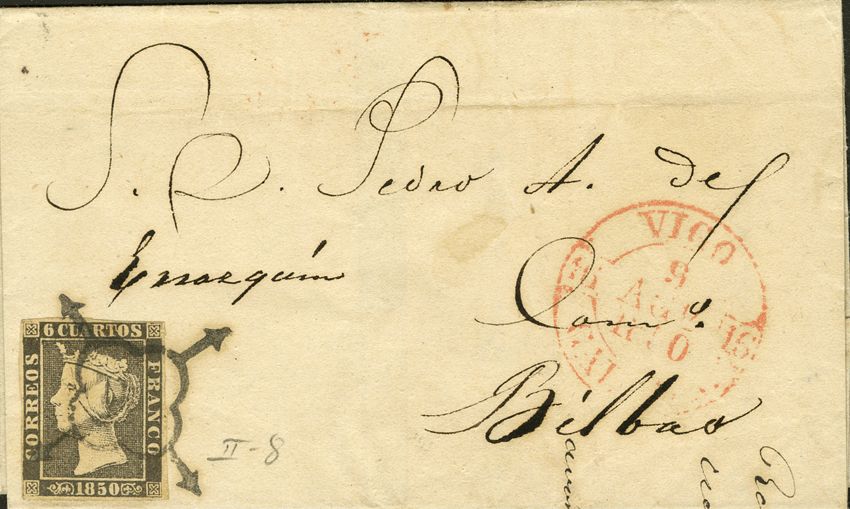 S. D. Pedro A. de
Errazquin
Comº.
Bilbao
VICO
8
AGO
16
6 CUARTOS
CORREOS
FRANCO
1850
II-8